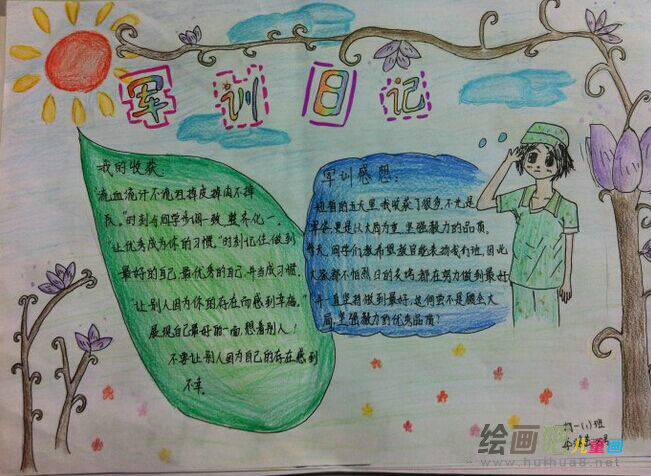 军训日记
我的收获:
"流血流汗不流泪掉皮掉肉不掉
队。"时刻与同学步调一致,整齐化一。
让优秀成为你的习惯,"时刻记住,做到
最好的自己,最优秀的自己,并当成习惯.
"让别人因为你的存在而感到幸福。"
展现自己最好的一面,想着别人!
不要让别人因为自己的存在感到
不幸.
军训感想:
短暂的五天里,我收获了很多,不光是
军姿,更是以大局为重,坚强毅力的品质。
每天,同学们都希望教官能表扬我们班,因此
大家都不怕烈日的炙烤,都在努力做到最好
并一直坚持做到最好,这何尝不是顾全大
局,坚强毅力的优秀品质?
初一(1)班
绘画 儿童画
www.huihua8.net